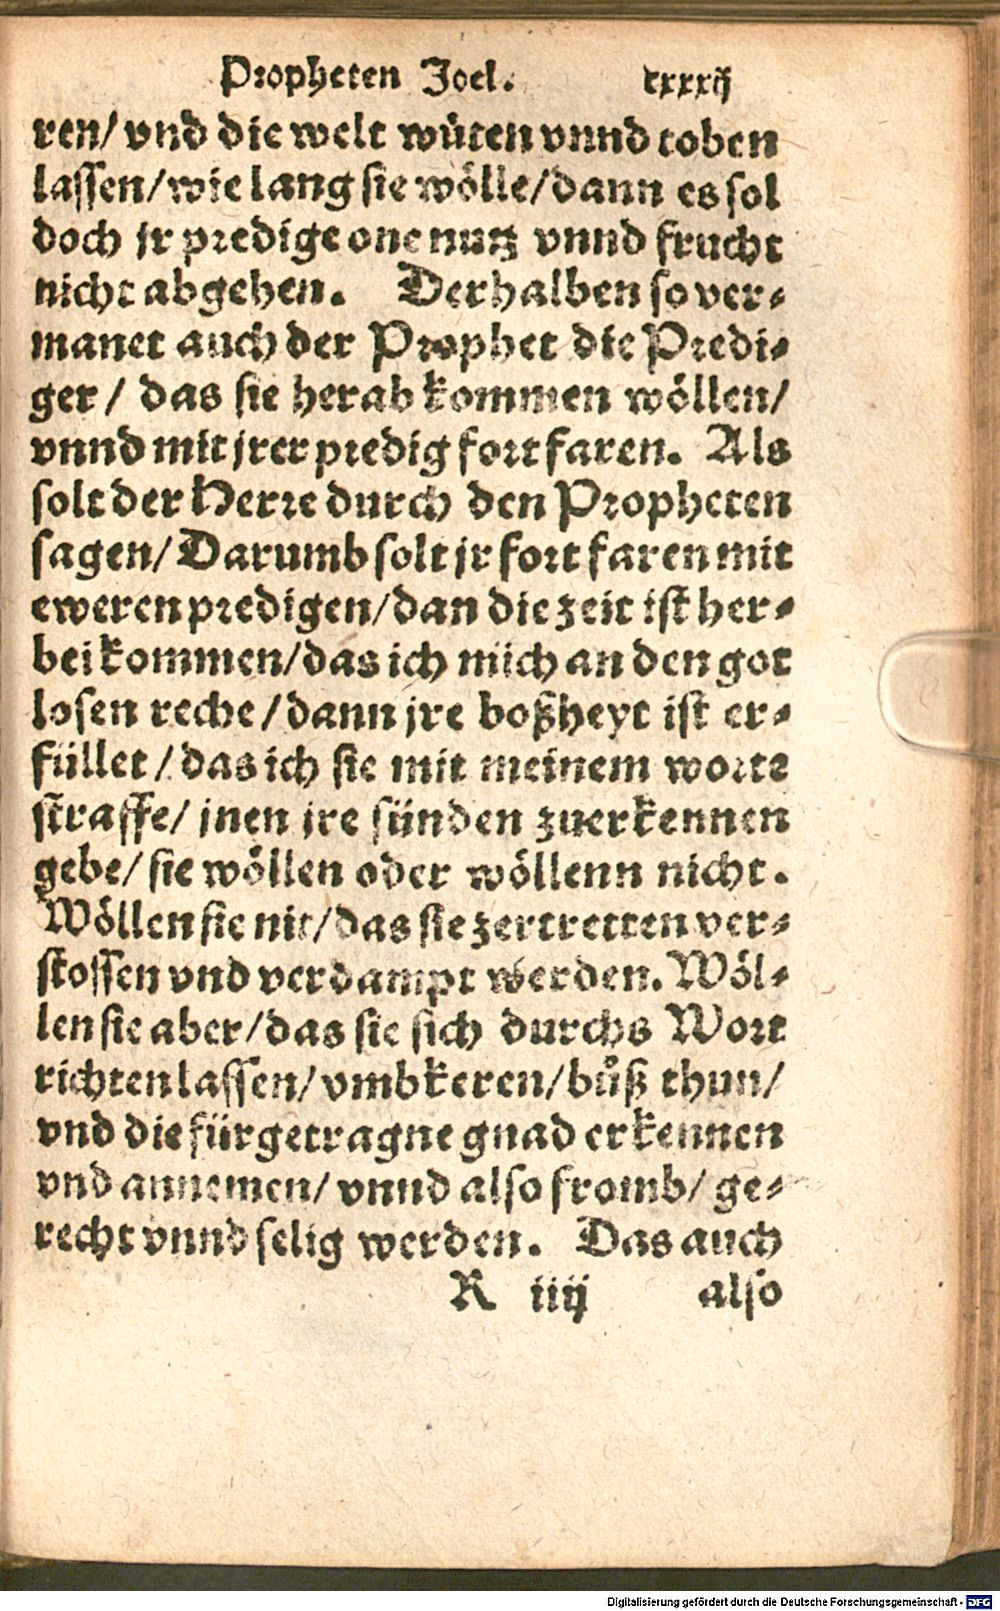 Propheten Joel. cxxxij
ren/ vnd die welt wüten vnnd toben
lassen/ wie lang sie wölle/ dann es sol
doch jr predige one nutz vnnd frucht
nicht abgehen. Derhalben so ver-
manet auch der Prophet die Predi-
ger/ das sie herab kommen wöllen/
vnnd mit jrer predig fort faren. Als
solt der Herre durch den Propheten
sagen/ Darumb solt jr fort faren mit
eweren predigen/ dan die zeit ist her-
bei kommen/ das ich mich an den got
losen reche/ dann jre boßheyt ist er-
füllet/ das ich sie mit meinem worte
straffe/ jnen jre sünden zuerkennen
gebe/ sie wöllen oder wöllenn nicht.
Wöllen sie nit/ das sie zertretten ver-
stossen vnd verdampt werden. Wöl-
len sie aber/ das sie sich durchs Wort
richten lassen/ vmbkeren/ bůß thun/
vnd die fürgetragne gnad erkennen
vnd annemen/ vnnd also fromb/ ge-
recht vnnd selig werden. Das auch
R iiij also
Digitalisierung gefördert durch die Deutsche Forschungsgemeinschaft - DFG